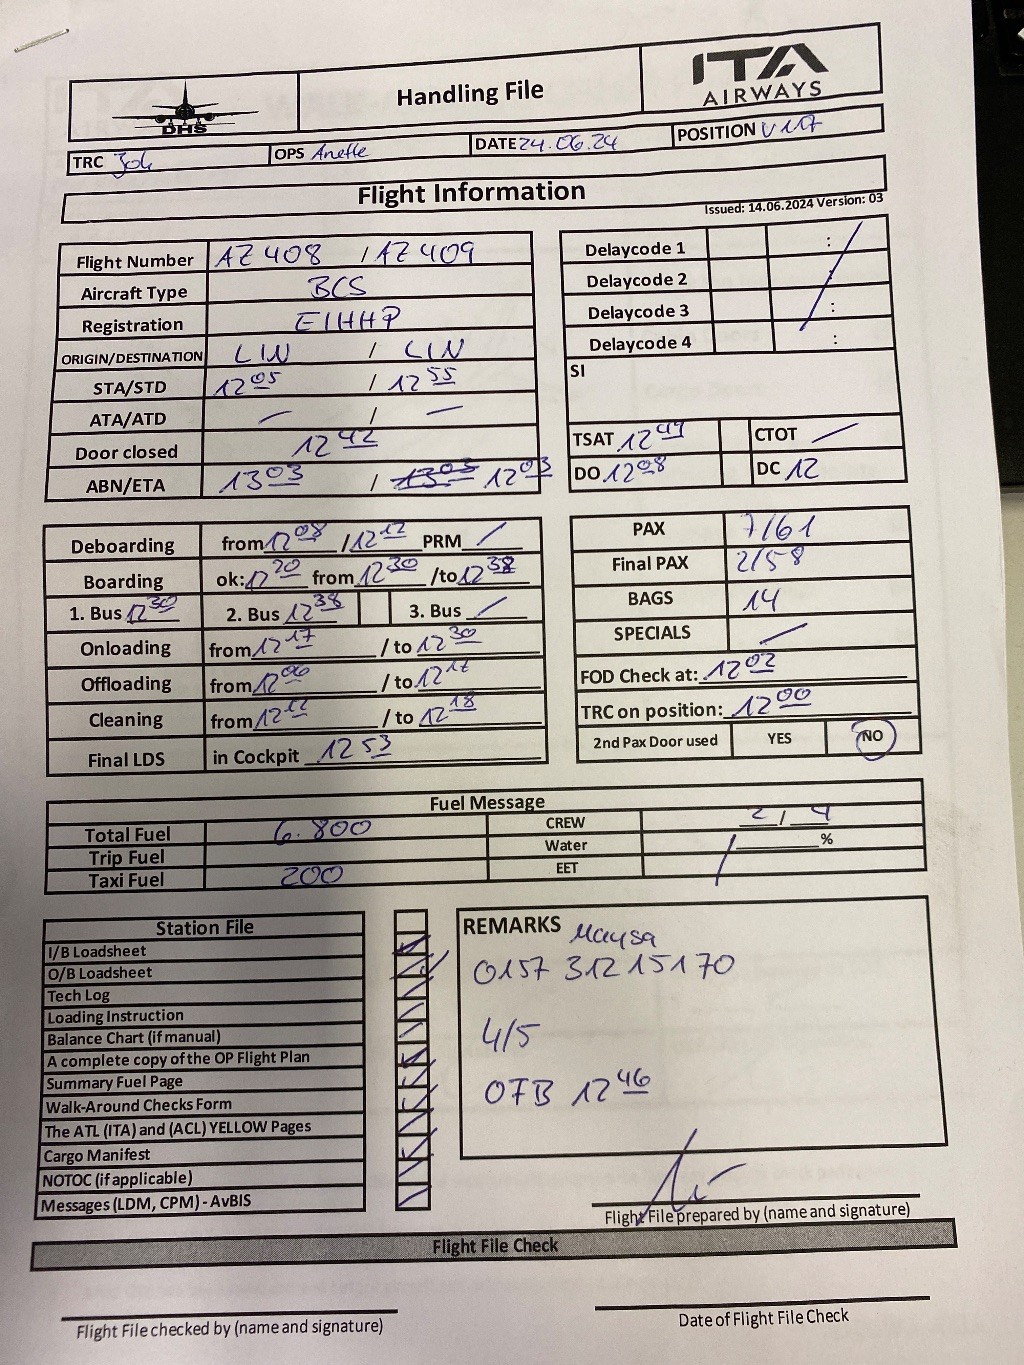 DHS
Handling File
ITA
AIRWAYS
TRC OPS Anette DATE 24.06.24 POSITION V117
Flight Information
Issued: 14.06.2024 Version: 03
Flight Number AZ 408 / AZ 409
Aircraft Type BCS
Registration EIHHP
ORIGIN/DESTINATION LIN / LIN
STA/STD 1205 / 1255
ATA/ATD — / —
Door closed 1242
ABN/ETA 1303 / 1303 1203
Delaycode 1 :
Delaycode 2 :
Delaycode 3 :
Delaycode 4 :
SI
TSAT 1247 CTOT /
DO 1208 DC 12
Deboarding from 1208 /1212 PRM /
Boarding ok: 1220 from 1230 /to 1238
1. Bus 1230 2. Bus 1238 3. Bus /
Onloading from 1217 / to 1230
Offloading from 1206 / to 1217
Cleaning from 1212 / to 1218
Final LDS in Cockpit 1253
PAX 7/61
Final PAX 2/58
BAGS 14
SPECIALS /
FOD Check at: 1202
TRC on position: 1200
2nd Pax Door used YES NO
Fuel Message
Total Fuel 6.800 CREW 2 / 4
Trip Fuel Water %
Taxi Fuel 200 EET
Station File
I/B Loadsheet
O/B Loadsheet
Tech Log
Loading Instruction
Balance Chart (if manual)
A complete copy of the OP Flight Plan
Summary Fuel Page
Walk-Around Checks Form
The ATL (ITA) and (ACL) YELLOW Pages
Cargo Manifest
NOTOC (if applicable)
Messages (LDM, CPM) - AvBIS
REMARKS Maysa
0157 31215170
4/5
OFB 1246
Flight File prepared by (name and signature)
Flight File Check
Flight File checked by (name and signature)
Date of Flight File Check